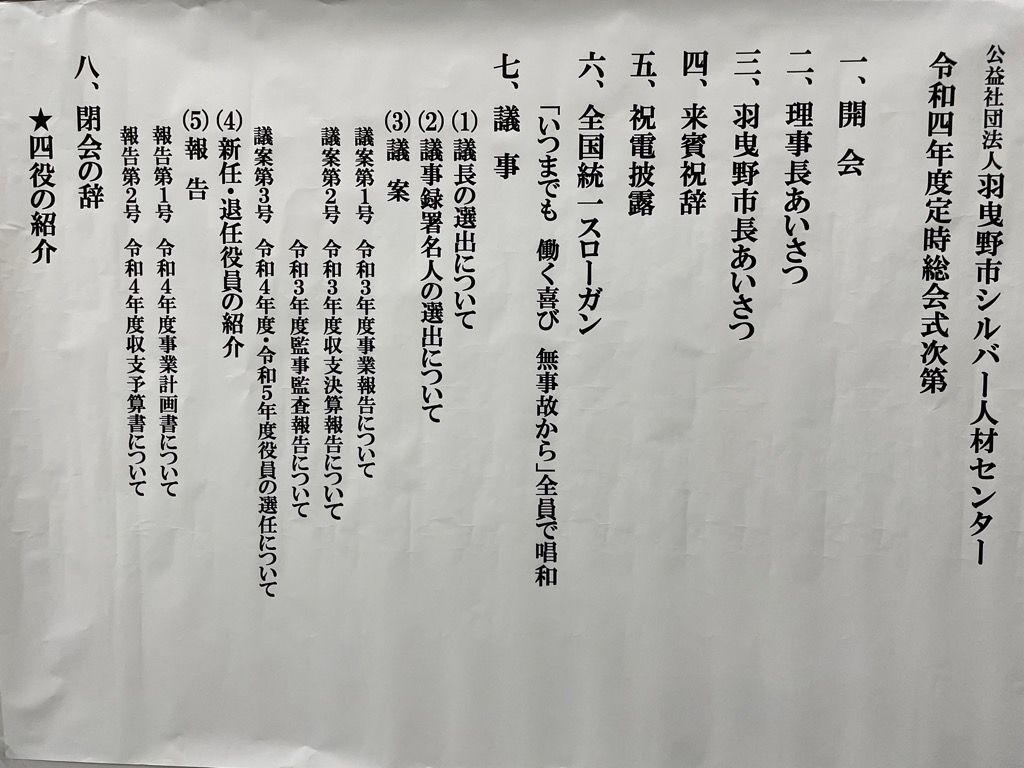 公益社団法人羽曳野市シルバー人材センター
令和四年度定時総会式次第
一、開会
二、理事長あいさつ
三、羽曳野市長あいさつ
四、来賓祝辞
五、祝電披露
六、全国統一スローガン
「いつまでも 働く喜び 無事故から」全員で唱和
七、議事
(1)議長の選出について
(2)議事録署名人の選出について
(3)議案
議案第1号 令和3年度事業報告について
議案第2号 令和3年度収支決算報告について
令和3年度監事監査報告について
議案第3号 令和4年度・令和5年度役員の選任について
(4)新任・退任役員の紹介
(5)報告
報告第1号 令和4年度事業計画書について
報告第2号 令和4年度収支予算書について
八、閉会の辞
★四役の紹介